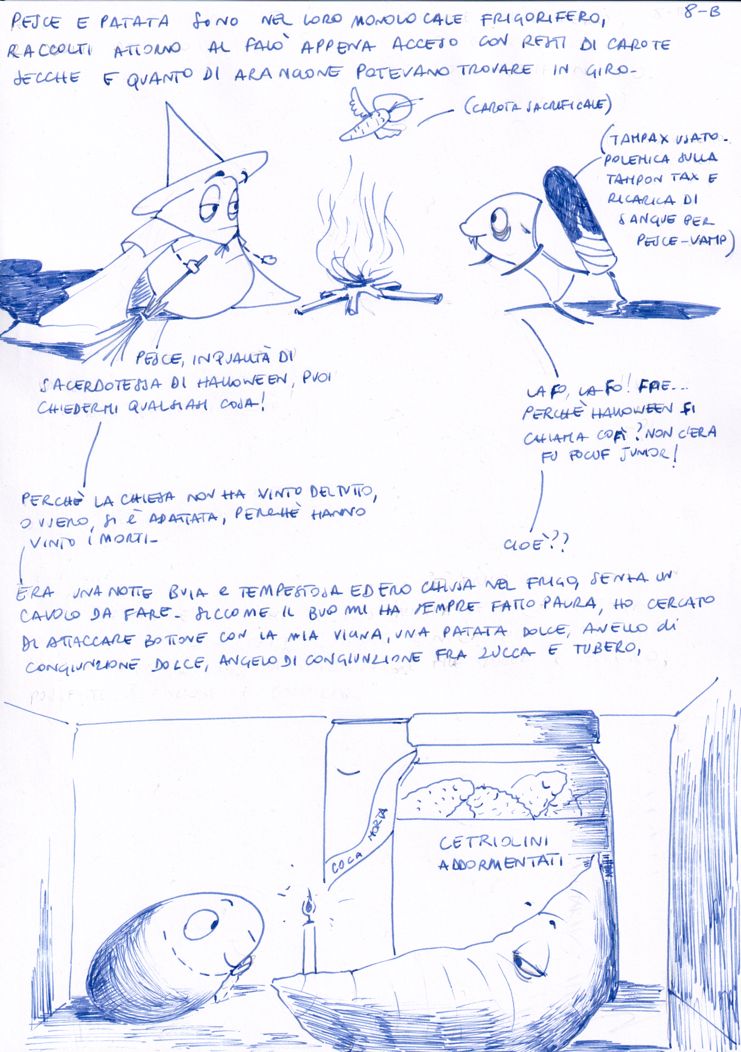 8-B
PESCE E PATATA SONO NEL LORO MONOLOCALE FRIGORIFERO,
RACCOLTI ATTORNO AL FALÒ APPENA ACCESO CON RESTI DI CAROTE
SECCHE E QUANTO DI ARANCIONE POTEVANO TROVARE IN GIRO-
(CAROTA SACRIFICALE)
(TAMPAX USATO-
POLEMICA SULLA
TAMPON TAX E
RICARICA DI
SANGUE PER
PESCE-VAMP)
PESCE, IN QUALITÀ DI
SACERDOTESSA DI HALLOWEEN, PUOI
CHIEDERMI QUALSIASI COSA!
LA FO, LA FO! FAE...
PERCHÈ HALLOWEEN FI
CHIAMA COFÌ? NON C'ERA
FU FOCUF JUNIOR!
PERCHÈ LA CHIESA NON HA VINTO DEL TUTTO,
OVVERO, SI È ADATTATA, PERCHÈ HANNO
VINTO I MORTI-
CIOÈ??
ERA UNA NOTTE BUIA E TEMPESTOSA ED ERO CHIUSA NEL FRIGO, SENZA UN
CAVOLO DA FARE- SICCOME IL BUO MI HA SEMPRE FATTO PAURA, HO CERCATO
DI ATTACCARE BOTTONE CON LA MIA VICINA, UNA PATATA DOLCE, ANELLO DI
CONGIUNZIONE DOLCE, ANGELO DI CONGIUNZIONE FRA ZUCCA E TUBERO,
COCA MORTA
CETRIOLINI
ADDORMENTATI